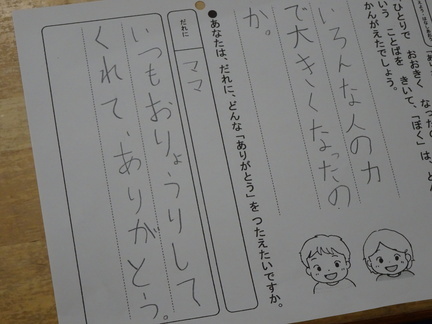 ひとりで おおきく なった
いう ことばを きいて、「ぼく」は、どん
かんがえたでしょう。
いろんな人の力
で大きくなったの
か。
●あなたは、だれに、どんな「ありがとう」を つたえたいですか。
だれに
ママ
いつもおりょうりして
くれて、ありがとう。